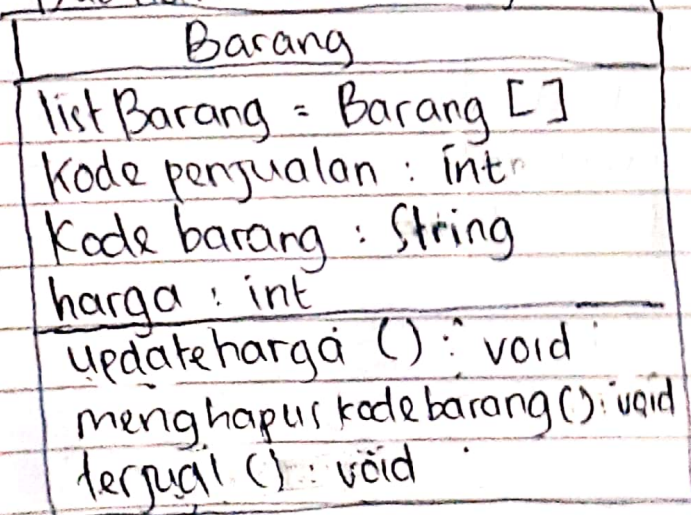 Barang
list Barang = Barang []
Kode penjualan : int
Kode barang : String
harga : int
updateharga () : void
menghapus kodebarang() : void
terjual () : void